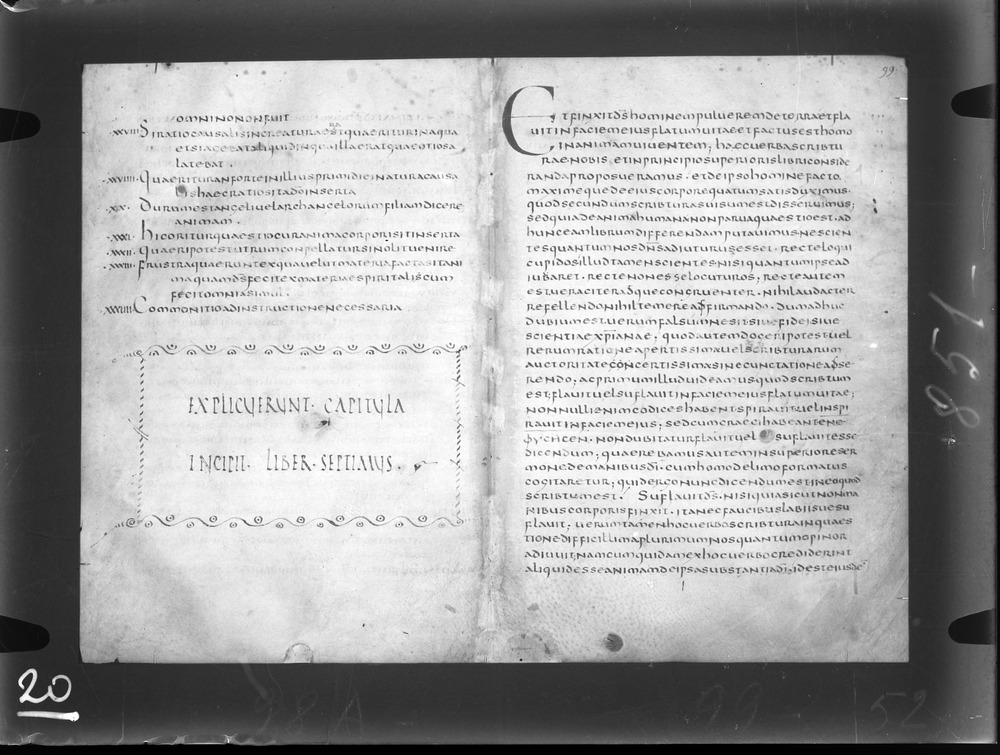 OMNINO NON FUIT
XXVIII SI RATIO CAUSALIS IN CREATURA EST QUAERITUR IN AQUA
RA
ET SI IACEBAT ALIQUID IN QUO ILLA ERAT QUAE OTIOSA
LATEBAT .
XXVIIII QUAERITUR AN FORTE IN ILLIUS PRIMI DIEI NATURA CAUSA
LIS HAEC RATIO SIT ADO INSERTA
XXX DURUM EST ANCELI UEL ARCHANCELORUM FILIAM DICERE
ANIMAM .
XXXI HIC ORITUR QUAESTIO CUR ANIMA CORPORI SIT INSERTA
XXXII QUAERI POTEST UTRUM CONPELLATUR SI NOLIT UENIRE
XXXIII FRUSTRA QUAERUNT EX QUA UELUT MATERIA FACTA SIT ANI
MA QUAM DS FECIT EX MATERIAE SPIRITALIS CUM
FECIT OMNIA SIMUL .
XXXIIII COMMONITIO AD INSTRUCTIONE NECESSARIA
EXPLICUERUNT · CAPITULA
INCIPIT · LIBER · SEPTIMUS .
99
ET FINXIT DS HOMINEM PULUEREM DE TERRA ET FLA
UIT IN FACIEM EIUS FLATUM UITAE ET FACTUS EST HOMO
IN ANIMAM UIUENTEM ; HAEC UERBA SCRIBTU
RAE NOBIS ET IN PRINCIPIO SUPERIORIS LIBRI CONSIDE
RANDA PROPOSUERAMUS . ET DE IPSO HOMINE FACTO
MAXIMEQUE DE EIUS CORPORE QUATUM SATIS DUXIMUS
QUOD SECUNDUM SCRIBTURAS UISUM EST DISSERUIMUS ;
SED QUIA DE ANIMA HUMANA NON PARUA QUAESTIO EST . AD
HUNC EAM LIBRUM DIFFERENDAM PUTAUIMUS NESCIEN
TES QUANTUM NOS DNS ADIUTURUS ESSET . RECTE LOQUI
CUPIDOS ILLUD TAMEN SCIENTES NISI QUANTUM IPSE AD
IUBARET . RECTE NON ESSE LOCUTUROS ; RECTE AUTEM
EST UERACITER ADQUE CONCRUENTER . NIHIL AUDACTER
REFELLENDO NIHIL TEMERE ADFIRMANDO . DUM ADHUC
DUBIUM EST UERUM FALSUMNE SIT SIUE FIDEI SIUE
SCIENTIAE XPIANAE . QUOD AUTEM DOCERI POTEST UEL
RERUM RATIONE APERTISSIMA UEL SCRIBTURARUM
AUCTORITATE CERTISSIMA SINE CUNCTATIONE ADSE
RENDO ; AC PRIMUM ILLUD UIDEAMUS QUOD SCRIBTUM
EST FLAUIT UEL SUFLAUIT IN FACIEM EIUS FLATUM UITAE ;
NONNULLI ENIM CODICES HABENT SPIRAUIT UEL INSPI
RAUIT IN FACIEM EIUS ; SED CUM CRAECI HABEANT ENE
FYCHCEN . NON DUBITATUR FLAUIT UEL SUFLAUIT ESSE
DICENDUM ; QUAEREBAMUS AUTEM IN SUPERIORE SER
MONE DE MANIBUS DI . CUM HOMO DE LIMO FORMATUS
COCITARETUR ; QUID ERCO NUNC DICENDUM EST IN EO QUOD
SCRIBTUM EST . SUFLAUIT DS . NISI QUIA SICUT NON MA
NIBUS CORPORIS FINXIT . ITA NEC FAUCIBUS LABIISUE SU
FLAUIT . UERUMTAMEN HOC UERBO SCRIBTURA IN QUAES
TIONE DIFFICILLIMA PLURIMUM NOS QUANTUM OPINOR
ADIUUIT ; NAM CUM QUIDAM EX HOC UERBO CREDIDERINT
ALIQUID ESSE ANIMAM DE IPSA SUBSTANTIA DI ; ID EST EIUSDE
851
20
52